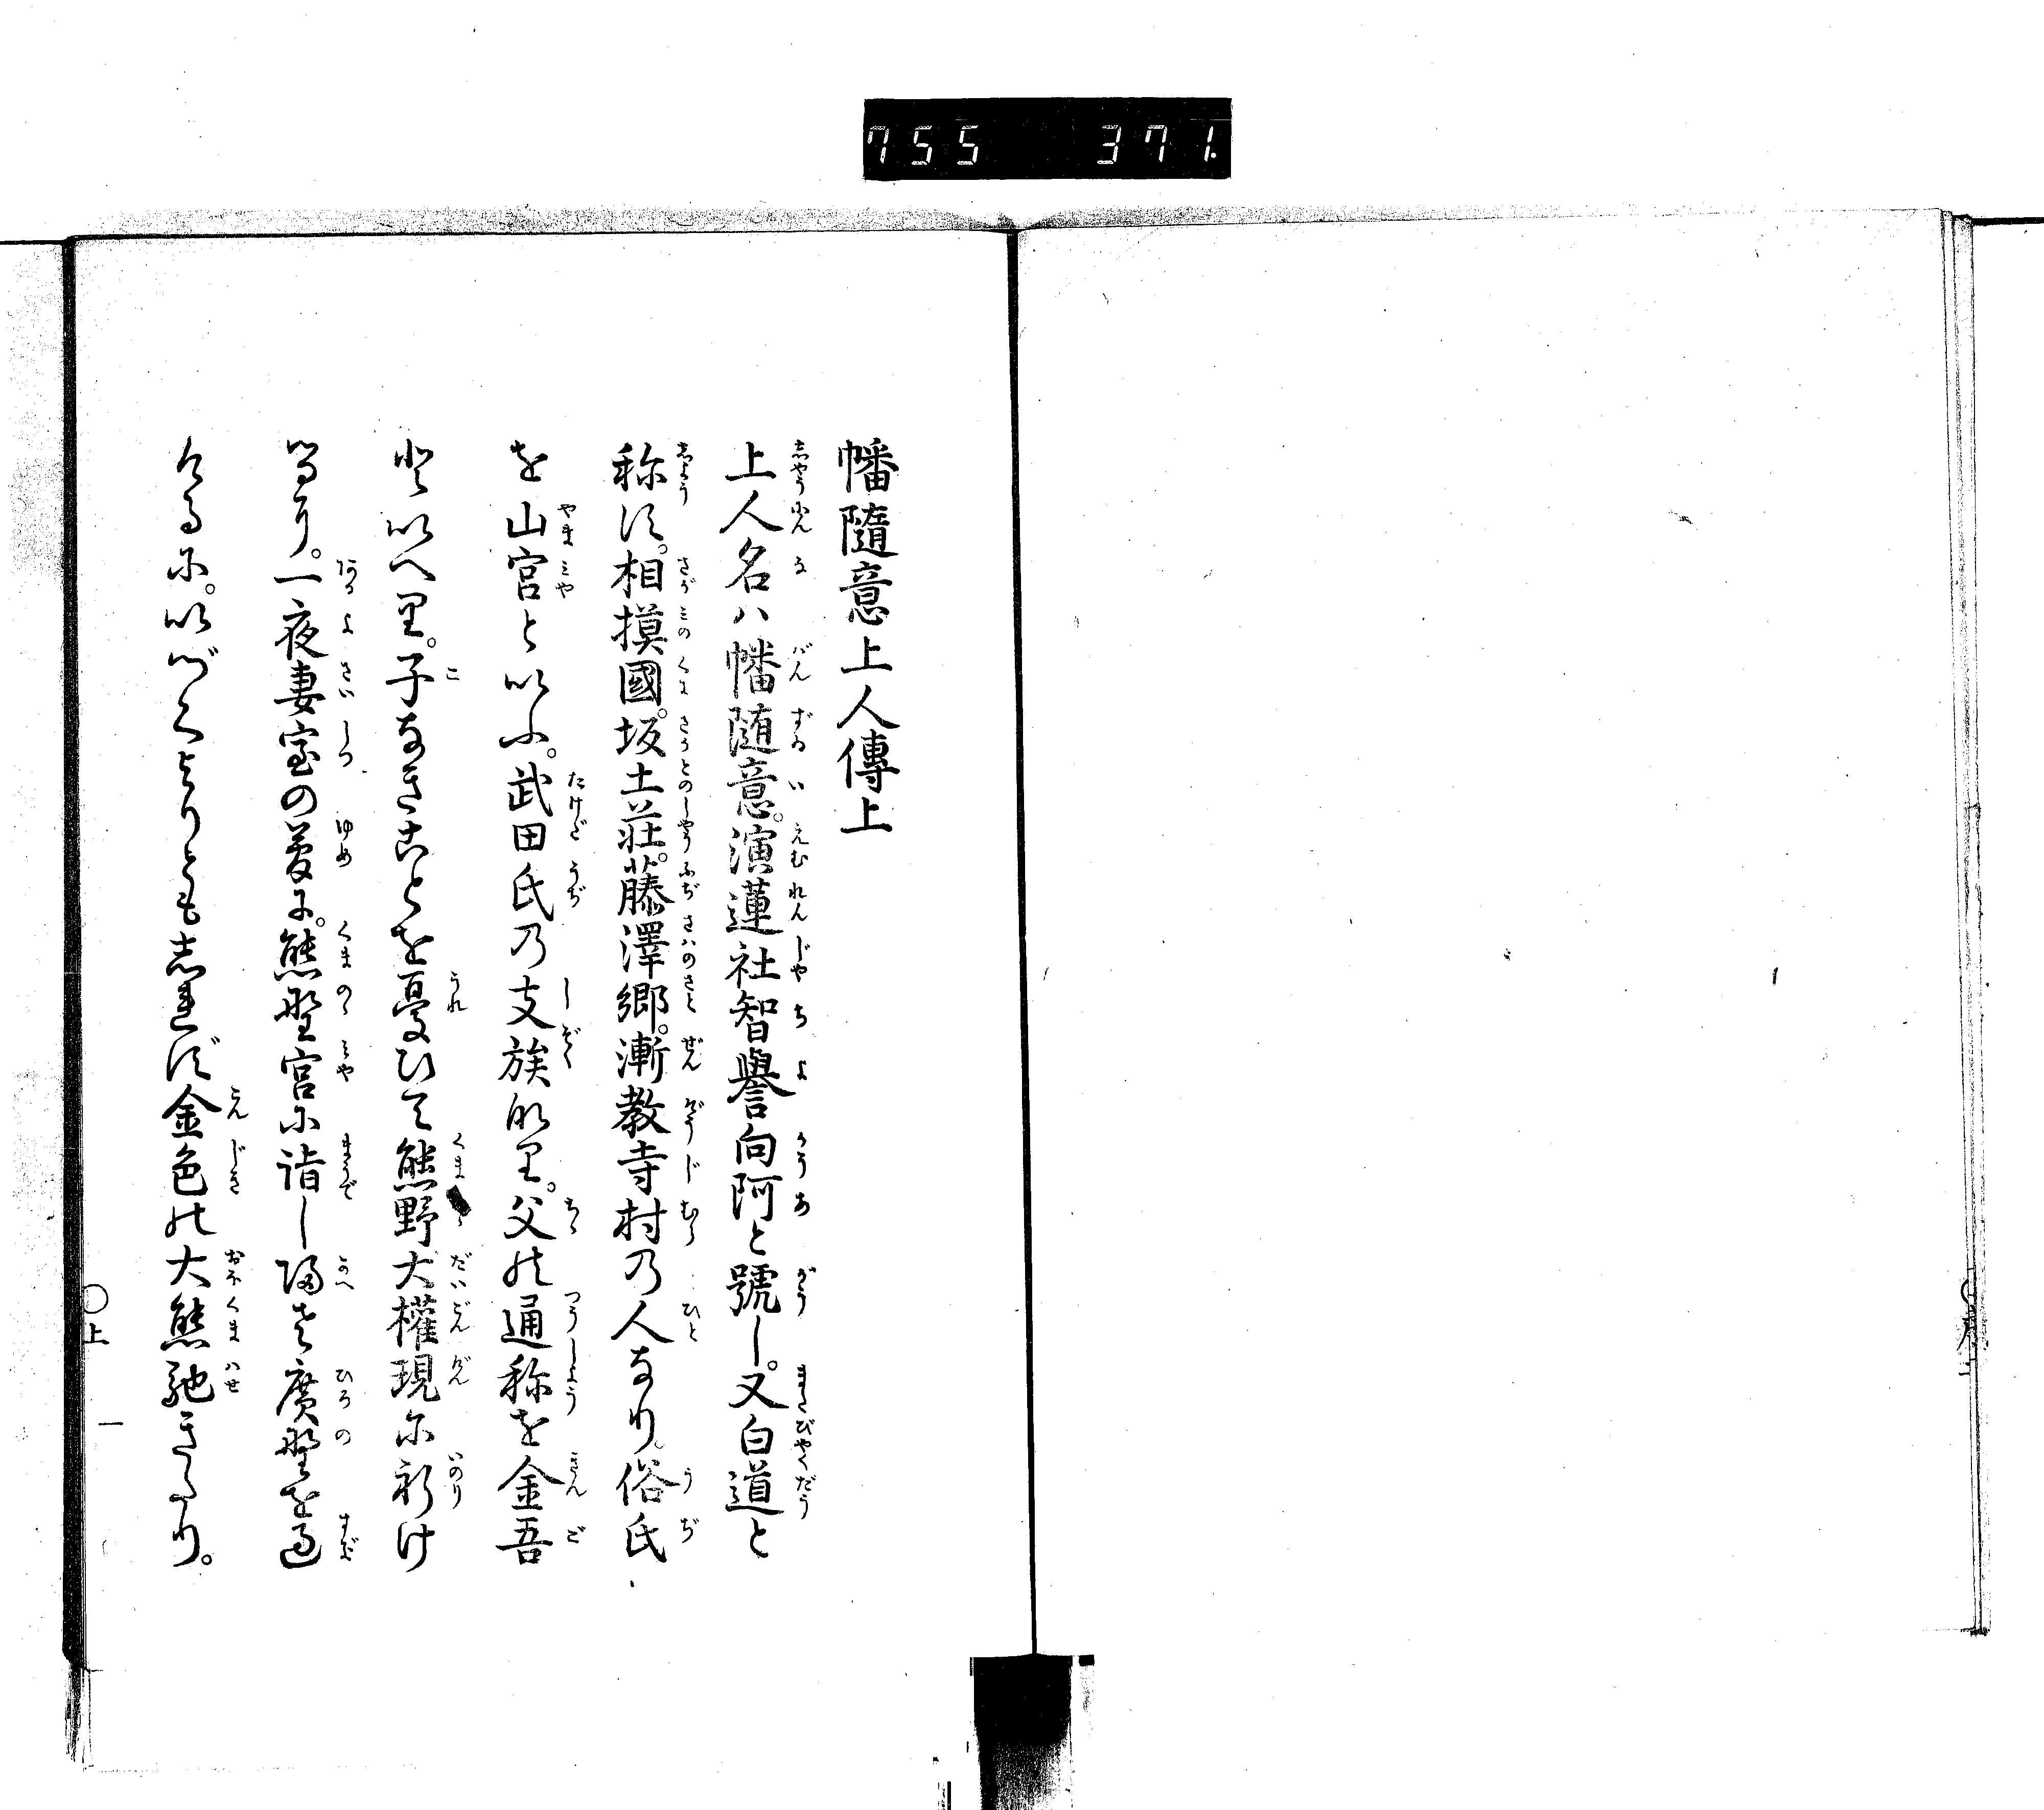 755 371.
幡隨意上人傳上
上人名ハ幡随意。演蓮社智譽向阿と號し。又白道と
称す。相摸國。坂土荘。藤澤郷。漸教寺村乃人なり。俗氏
を山宮といふ。武田氏乃支族なり。父の通称を金吾
といへり。子なきことを憂ひて熊野大權現に祈け
るり。一夜妻室の夢に。熊野宮に詣し帰さ廣野を過
くるに。いづくよりとも志れず金色の大熊馳きたり。
〇上
一